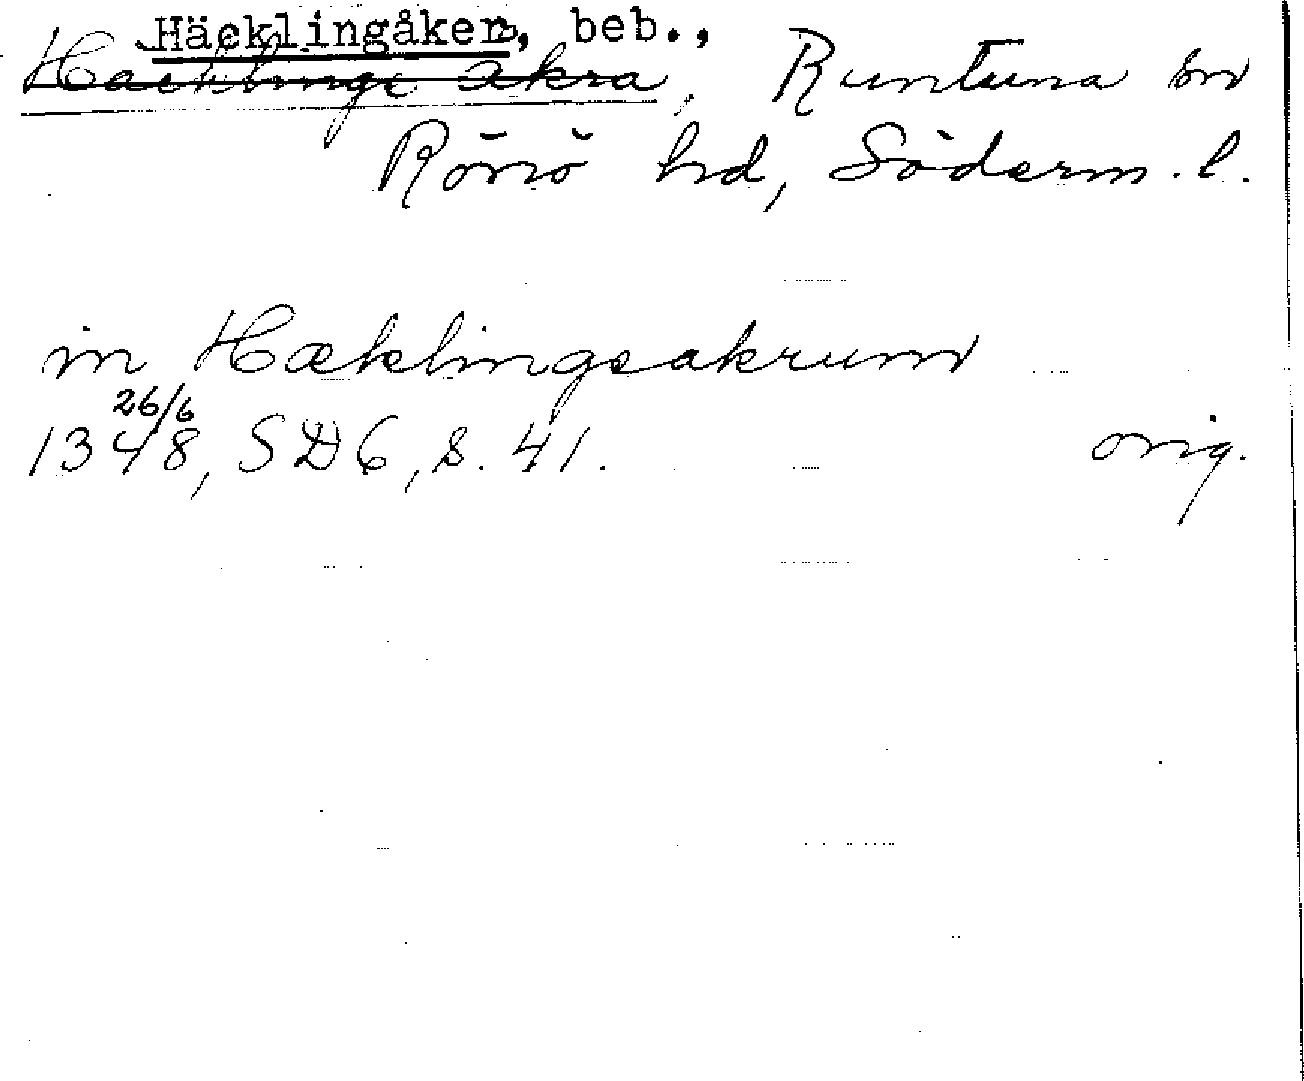 Häcklingåker, beb.,
Haeklinge akra, Runtuna sn
Rönö hd, Söderm. l.
in Hæklingsakrum
26/6
1348, SD6, s. 41. orig.